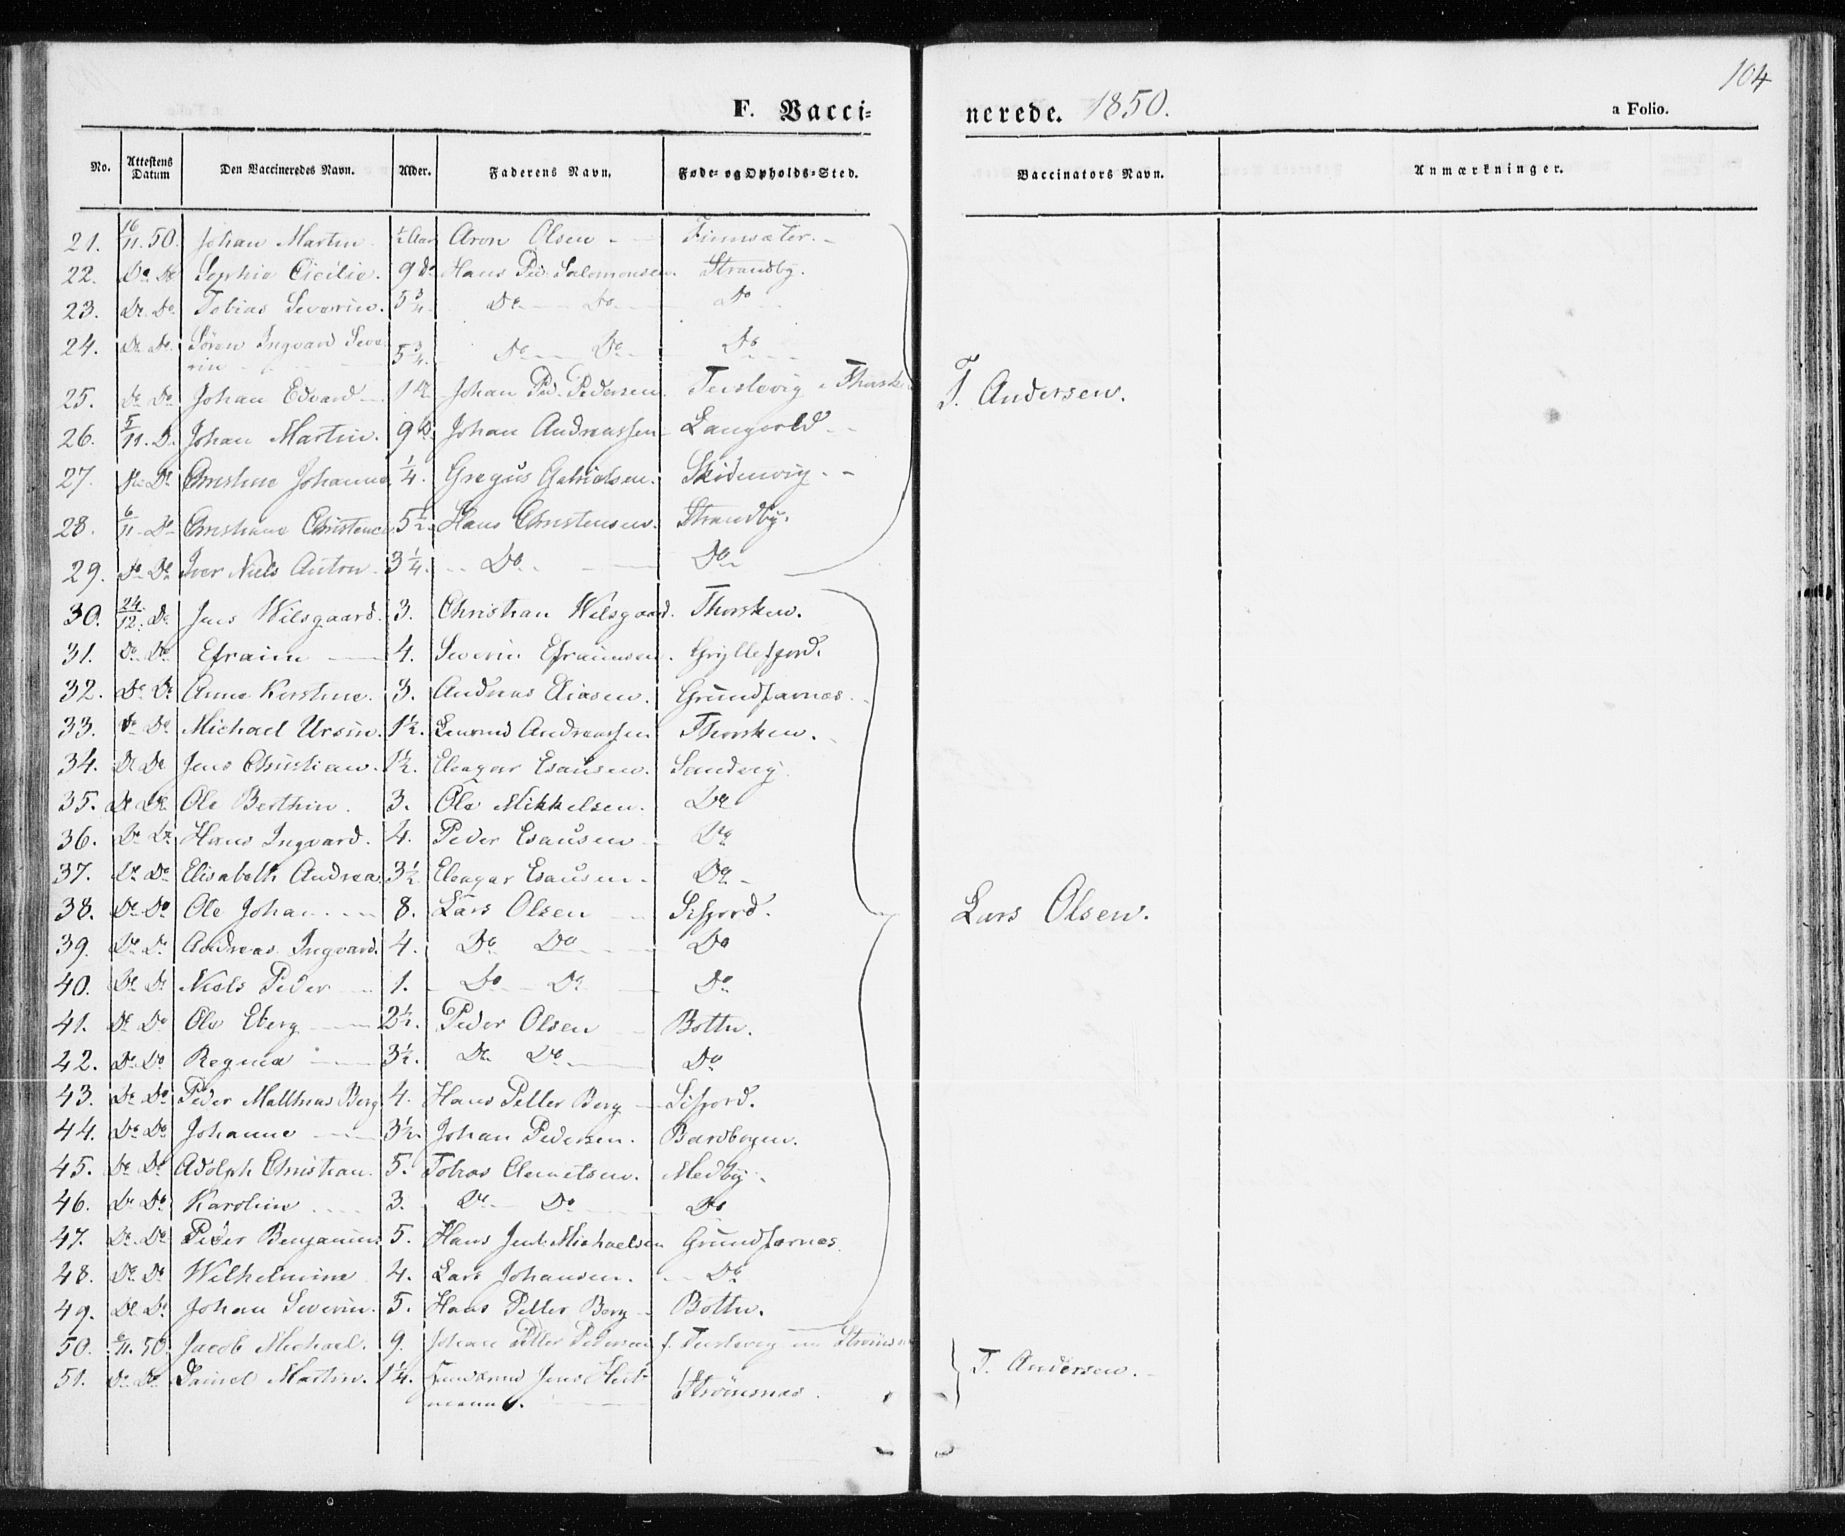 104
F. Vacci-
nerede. 1850.
a Folio.
No. Attestens Datum Den Vaccineredes Navn. Alder. Faderens Navn. Føde- og Opholds-Sted. Vaccinators Navn. Anmærkninger.
21. 16/11. 50. Johan Martin ½ Aar Aron Olsen Finnsæter.
22. Do Do Sophie Cicilie. 9 do Hans Ped. Salomonsen. Strandby.
23. Do. Do. Tobias Severin. 5¾. Do Do Do
24. Do. Do. Sören Ingvard Seve-
rin 5¾. Do Do Do
25. Do Do Johan Edvard 1 Johan Ped. Pedersen. Teistevig Thorsken
T. Andersen.
26. 5/11. D. Johan Martin. 9 Johan Andreassen Sangereld
27. Do Do Christine Johanne ¼. Gregus Gabrielsen. Skidenvig
28. 6/11 Do Christiane Christence 5½. Hans Christensen. Strandby.
29. Do Do Iver Niels Anton 3¼. Do Do
30. 24/12. Do Jens Wilsgaard. 3. Christian Wilsgaard. Thorsken.
31. Do Do Efraim 4. Severin Efraimsen. Gryllefjord.
32. Do Do Anne Kirstine. 3. Andreas Eliasen. Grundfarnes.
33. Do Do Michael Ursin. 1½. Andreassen Thorsken.
34. Do Do Jens Christian. 1½. Eleazar Esausen. Sandvig
35. Do Do Ole Berthin. 3. Ole Mikkelsen. Do
36. Do Do Hans Ingvard. 4. Peder Esausen Do
37. Do Do Elisabeth Andrea 3½ Eleazar Esausen Do
38. Do Do Ole Johan 8. Lars Olsen Sifjord.
Lars Olsen.
39. Do Do Andreas Ingvard. 4. Do Do Do
40. Do Do Niels Peder 1. Do Do Do
41. Do Do Ole Eberg 2½. Peder Olsen Botten.
42. Do Do Regine 3½. Do Do Do
43. Do Do Peder Matthias Berg 4. Hans Petter Berg Sifjord.
44. Do Do Johanne 3½. Johan Pedersen. Bardbogen.
45. Do Do Adolph Christian. 5. Tobias Clemetsen. Medby.
46. Do Do Karoline 3. Do Do Do
47. Do Do Peder Benjamin. 5. Hans Jent. Michaelsen Grundfarnes.
48. Do Do Wilhelmine 4. Lars Johansen. Do
49. Do Do Johan Severin. 5. Hans Petter Berg Botten.
50. 6/11. 50. Jacob Michael. 9. Johan Petter Pedersen f. Teistevig
51. Do Do Daniel Martin. 1¼. Jens Heit-
mann. Strömsnes.
T. Andersen.